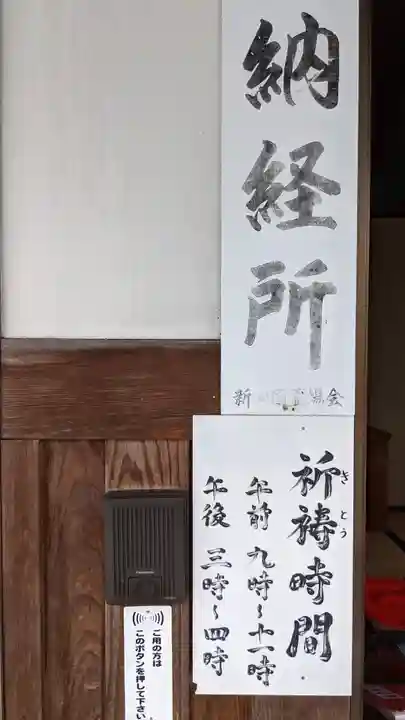 納経所
新四国霊場会
祈祷時間
きとう
午前 九時~十一時
午後 三時~四時
Panasonic
ご用の方は
このボタンを押して下さい。